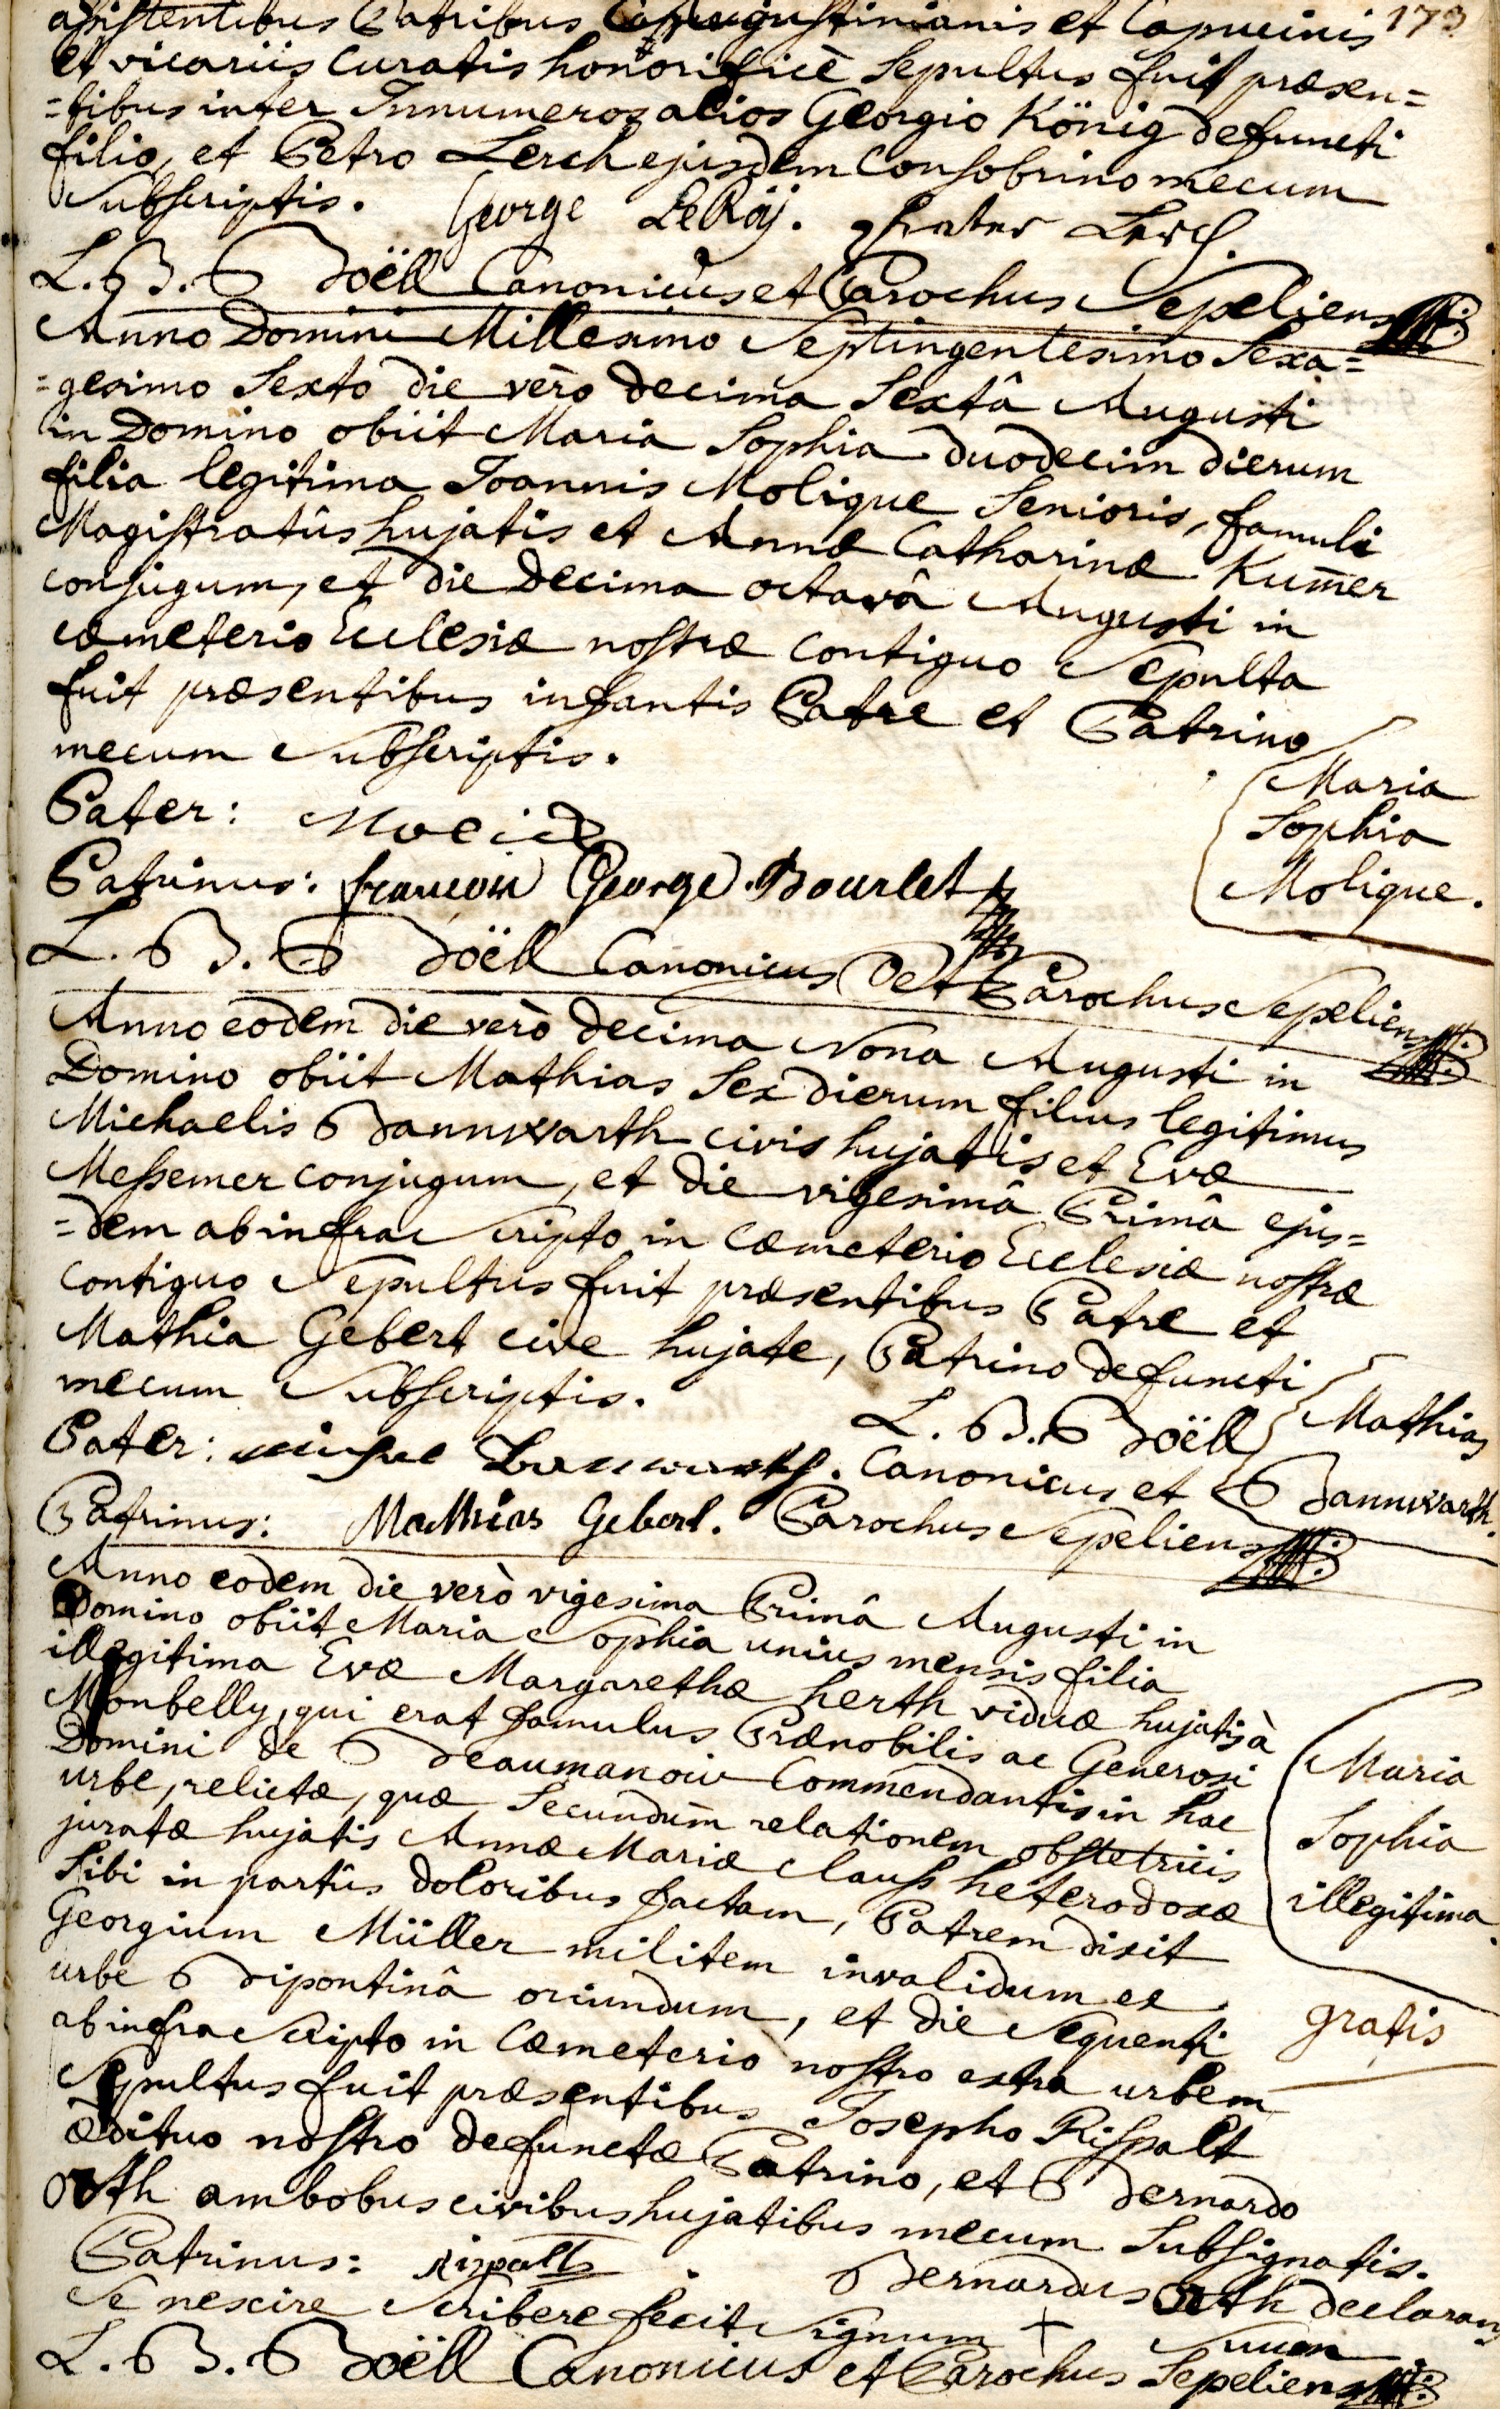 assistentibus Patribus Augustinianis et Capucinis 173
et vicariis Curatis honorificè Sepultus fuit præsen=
=tibus inter Innumeros alios Georgio König defuncti
filio, et Petro Lerch ejusdem Consobrino mecum
Subscriptis. George Le Roÿ. Lerch.
L. B. Boëll Canonicus et Parochus Sepeliens
Anno Domini Millesimo Septingentesimo Sexa=
=gesimo Sexto die verò decima Sextâ Augusti
in Domino obiit Maria Sophia duodecim dierum
filia legitima Joannis Molique Senioris, famuli
Magistratûs hujatis et Annæ Catharinæ Kum̄er
conjugum, et die decima octavâ Augusti in
cœmeterio Ecclesiæ nostræ contiguo Sepulta
fuit præsentibus infantis Patre et Patrino
mecum Subscriptis.
Maria
Sophia
Molique.
Pater:
Patrinus: françois George Bourlet
L. B. Boëll Canonicus et Parochus Sepeliens
Anno eodem die verò decima Nona Augusti in
Domino obiit Mathias Sex dierum filius legitimus
Michaelis Bannwarth civis hujatis et Evæ
Messemer conjugum, et die vigesimâ Primâ ejus=
=dem ab infra Scripto in Cœmeterio Ecclesiæ nostræ
contiguo Sepultus fuit præsentibus Patre et
Mathia Gebert cive hujate, Patrino defuncti
mecum Subscriptis.
Mathias
Bannwarth.
Pater: Bannwarth. L. B. Boëll
Canonicus et
Patrinus: Mathias Gebert. Parochus Sepeliens
Anno eodem die verò vigesima Primâ Augusti in
Domino obiit Maria Sophia unius mensis filia
illegitima Evæ Margarethæ herth viduæ hujatis à
Monbelly, qui erat famulus Prænobilis ac Generosi
Domini de Beaumanoir Commendantis in hac
urbe, relictæ, quæ Secundum relationem obstetricis
juratæ hujatis Annæ Mariæ Clauss heterodoxæ
Sibi in partûs doloribus factam, Patrem dixit
Georgium Müller militem invalidum ex
urbe Bipontinâ oriundum, et die Sequenti
ab infra Scripto in Cœmeterio nostro extra urbem
Sepultus fuit præsentibus Josepho Rispalt
ædituo nostro defunctæ Patrino, et Bernardo
Orth ambobus civibus hujatibus mecum Subsignatis.
Maria
Sophia
illegitima.
gratis
Patrinus: rispalt. Bernardus Orth declarans
Se nescire Scribere fecit Signum + Suum
L. B. Boëll Canonicus et Parochus Sepeliens